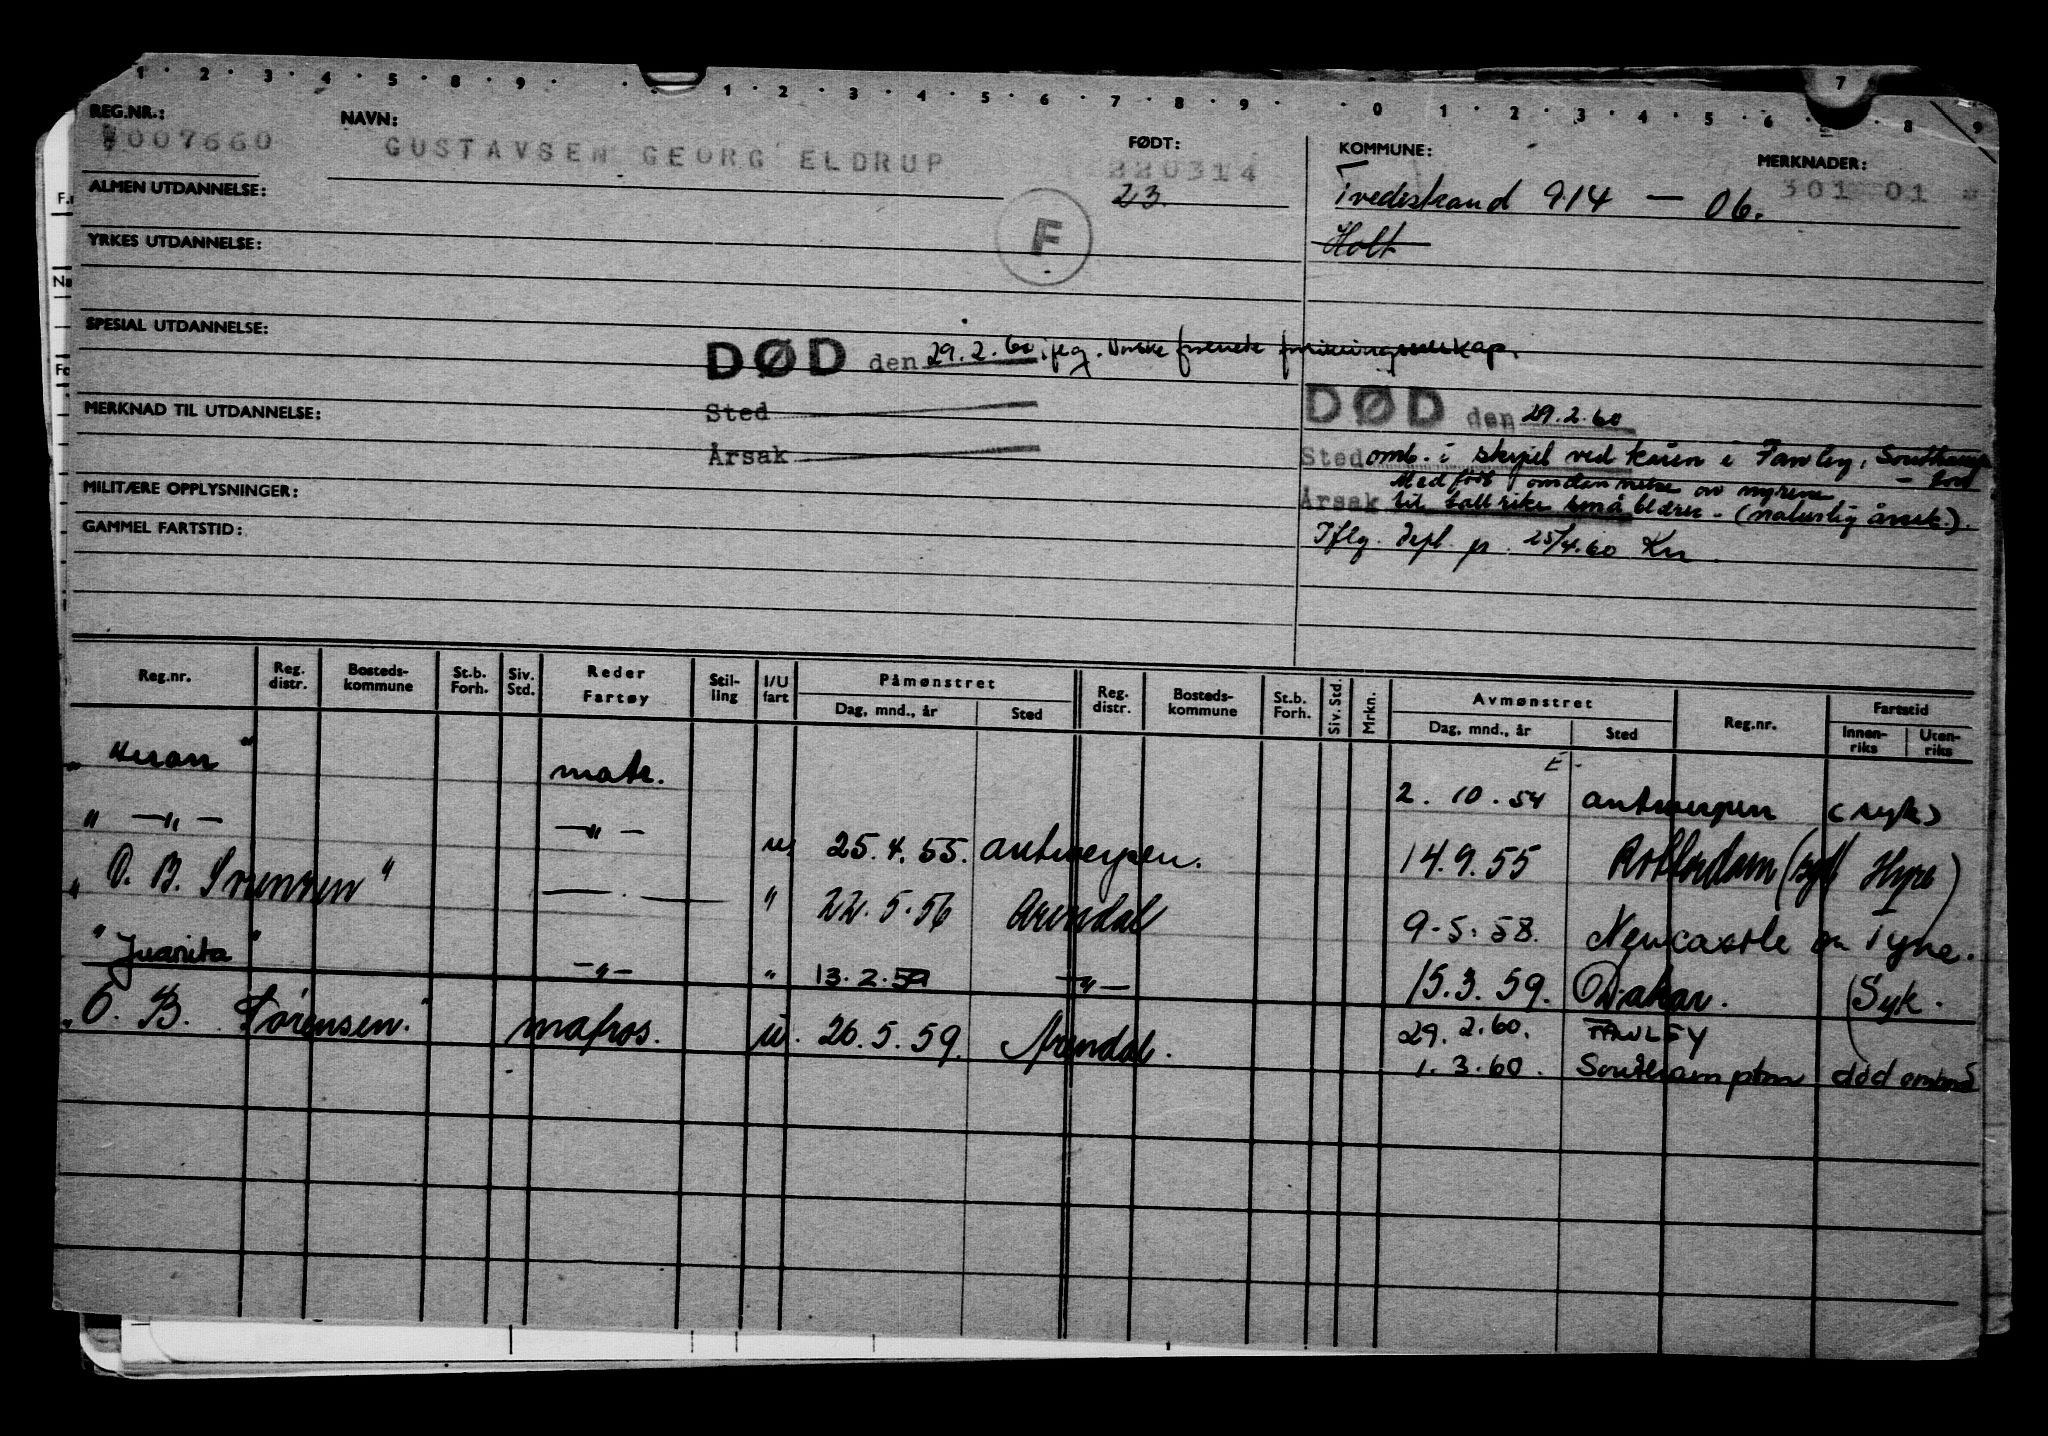 1 · 2 · 3 · 4 · 5 · 8 · 9 · 1 · 2 · 3 · 4 · 5 · 6 · 7 · 8 · 9 · 0 · 1 · 2 · 3 · 4 · 5 · 6 · 8 9
7
REG.NR.: NAVN: FØDT: KOMMUNE: MERKNADER:
007660 GUSTAVSEN GEORG ELDRUP 220314 301 01
23. Tvedestrand 914 — 06.
ALMEN UTDANNELSE:
F
Holt
YRKES UTDANNELSE:
SPESIAL UTDANNELSE:
DØD den 29.2.60 ifg. Norske forenede forsikringsselskap.
MERKNAD TIL UTDANNELSE:
Sted
Årsak
DØD den 29.2.60
Sted omb. i skipet ved kaien i Fawley, Southamp-
ton
Medfødt omdannelse av nyrene
Årsak til tallrike små blærer - (naturlig årsak).
Iflg. depl. p. 25/4.60
MILITÆRE OPPLYSNINGER:
GAMMEL FARTSTID:
Reg.nr. Reg. distr. Bosteds-kommune St.b. Forh. Siv. Std. Reder Fartøy Stil-ling I/U fart Påmønstret Dag, mnd., år Sted Reg. distr. Bosteds-kommune St.b. Forh. Siv. Std. Mrkn. Avmønstret Dag, mnd., år Sted Reg.nr. Fartstid Innen-riks Uten-riks
" " matr. 2.10.54 Antwerpen (syk)
" —„— —„— u. 25.4.55. Antwerpen. 14.9.55 Rotterdam (syk Hyre)
" O. B. Sørensen " — — " 22.5.56 Arendal 9.5.58. Newcastle on Tyne.
" Juanita " —„— " 13.2.59 —„— 15.3.59. Dakar. (Syk.
" O. B. Sørensen. " matros. u. 26.5.59. Arendal. 29.2.60. FAWLEY
1.3.60. Southampton død ombord